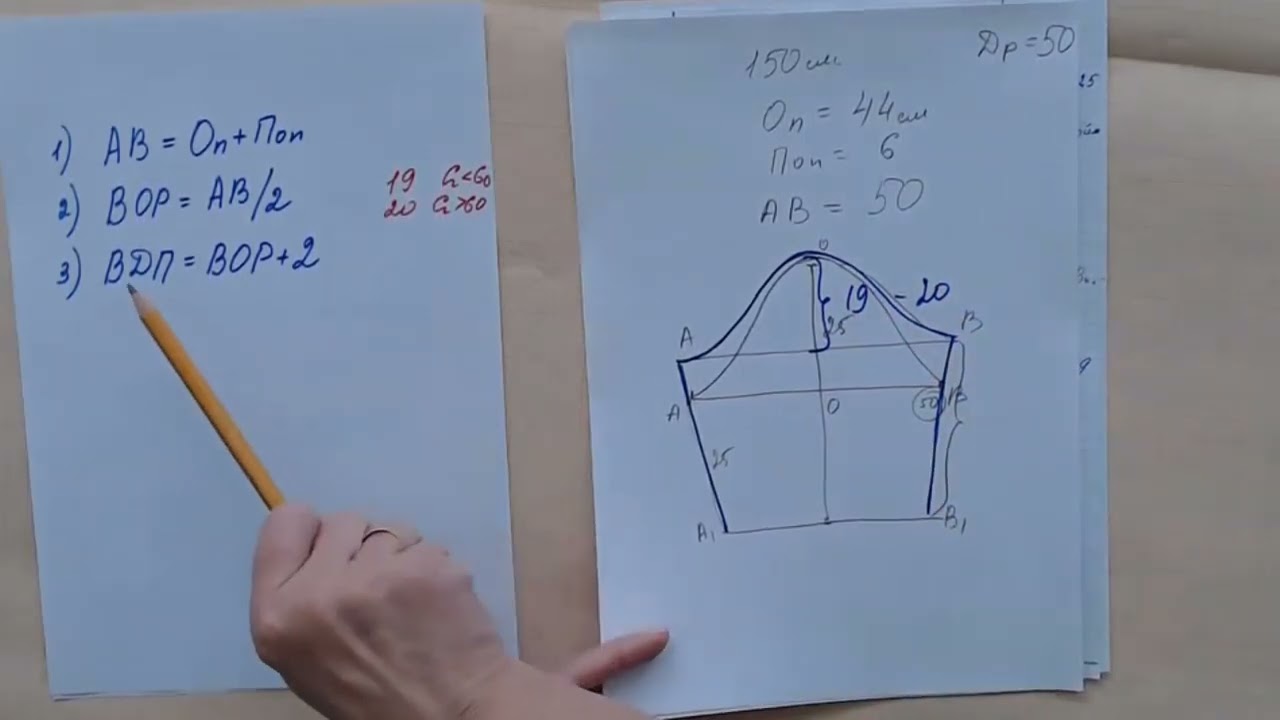 1) АВ = Оп + Поп
2) ВОР = АВ/2
3) ВДП = ВОР + 2
19 Сг<60
20 Сг>60
Др = 50
150 см
Оп = 44 см
Поп = 6
АВ = 50
О
19 - 20
25
А
В
А
О
50
В
25
А₁
В₁
25
9